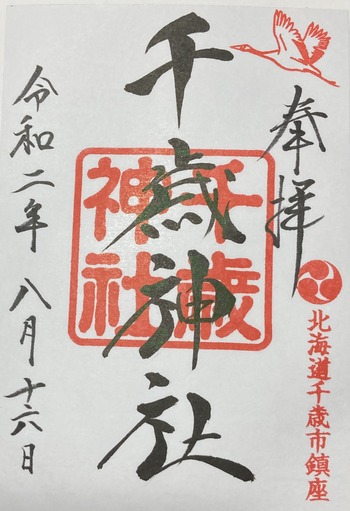 奉拝
北海道千歳市鎮座
千歳神社
千歳
神社
令和二年 八月十六日